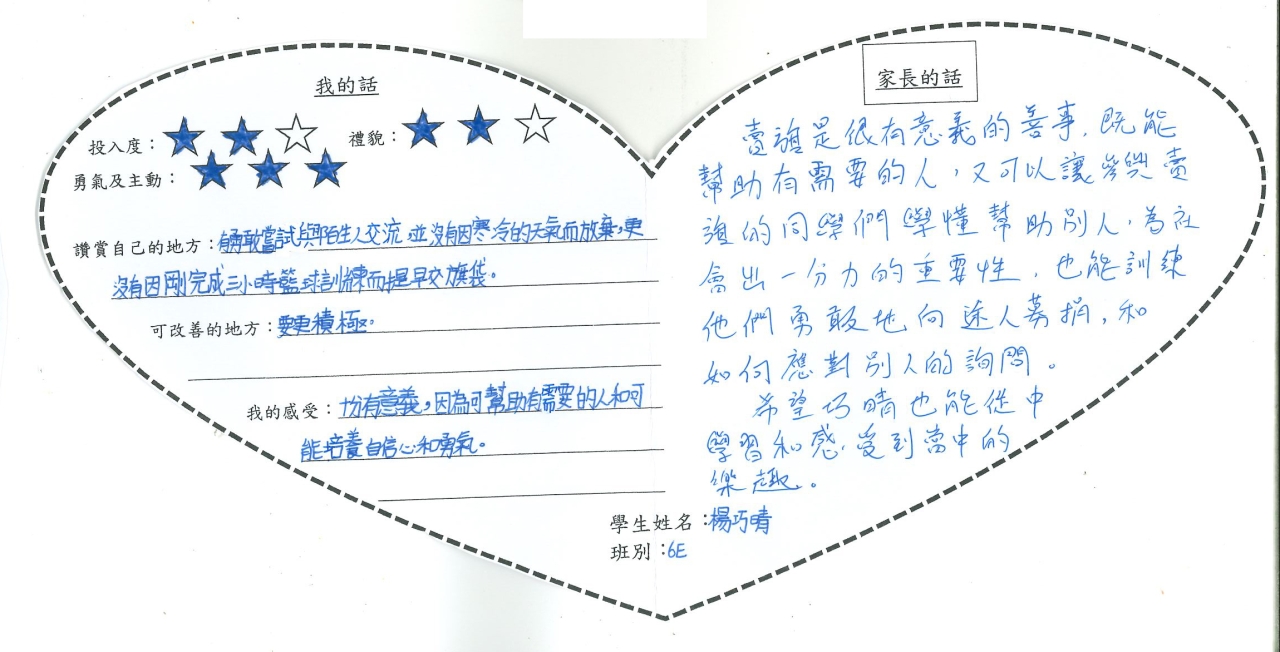 我的話
投入度：★★☆ 禮貌：★★☆
勇氣及主動：★★★
讚賞自己的地方：有勇敢嘗試與陌生人交流，並沒有因寒冷的天氣而放棄，更
沒有因剛完成三小時籃球訓練而提早交旗袋。
可改善的地方：要更積極。
我的感受：十份有意義，因為可幫助有需要的人和可
能培養自信心和勇氣。
家長的話
賣旗是很有意義的善事，既能
幫助有需要的人，又可以讓參與賣
旗的同學們學懂幫助別人，為社
會出一分力的重要性，也能訓練
他們勇敢地向途人募捐，和
如何應對別人的詢問。
希望巧晴也能從中
學習和感受到當中的
樂趣。
學生姓名：楊巧晴
班別：6E